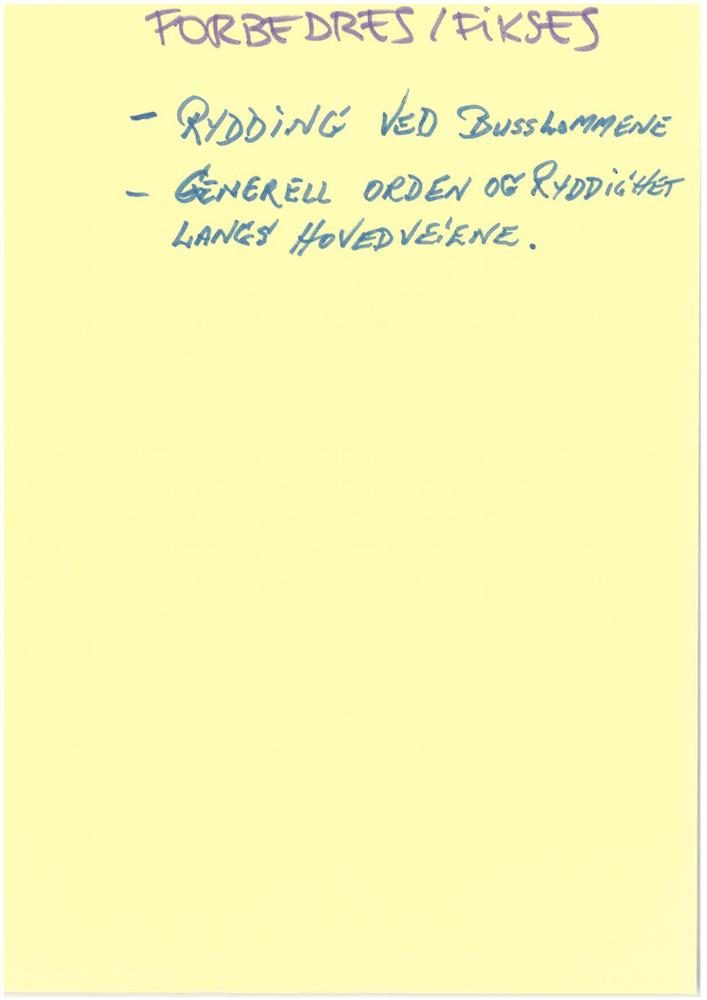 FORBEDRES / FiKSES
- RYDDiNG VED BUSSLOMMENE
- GENERELL ORDEN OG RYDDiGHET
LANGS HOVEDVEiENE.